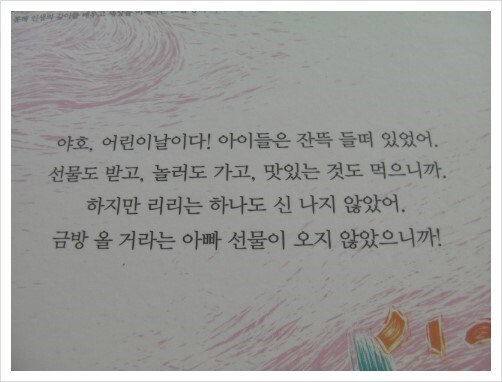 야호, 어린이날이다! 아이들은 잔뜩 들떠 있었어.
선물도 받고, 놀러도 가고, 맛있는 것도 먹으니까.
하지만 리리는 하나도 신 나지 않았어.
금방 올 거라는 아빠 선물이 오지 않았으니까!